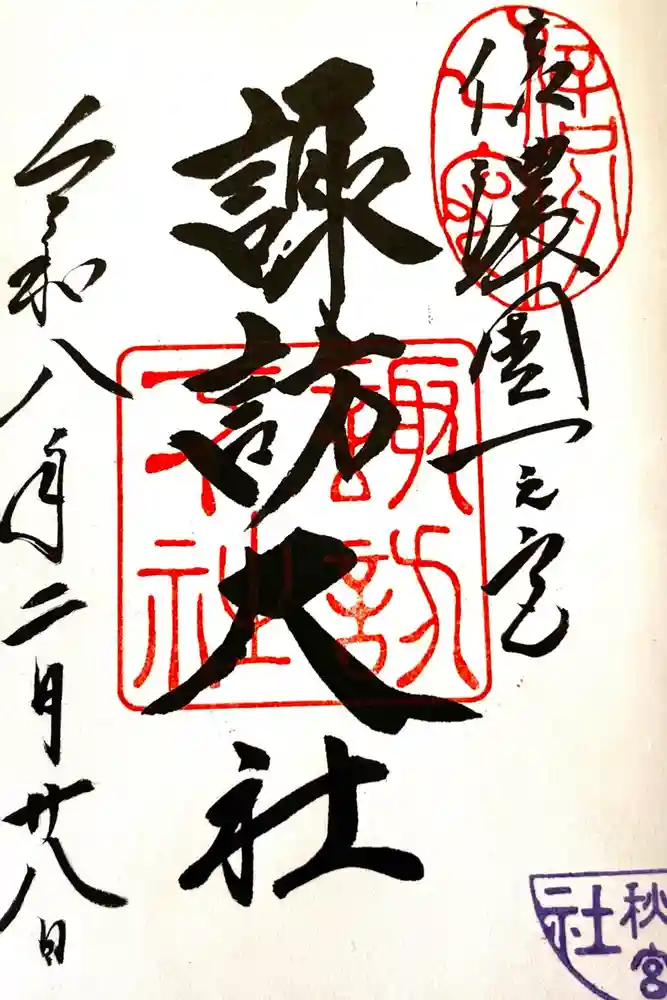 信濃國一之宮
諏訪大社
令和八年二月廿八日
諏訪
大社
秋宮
社